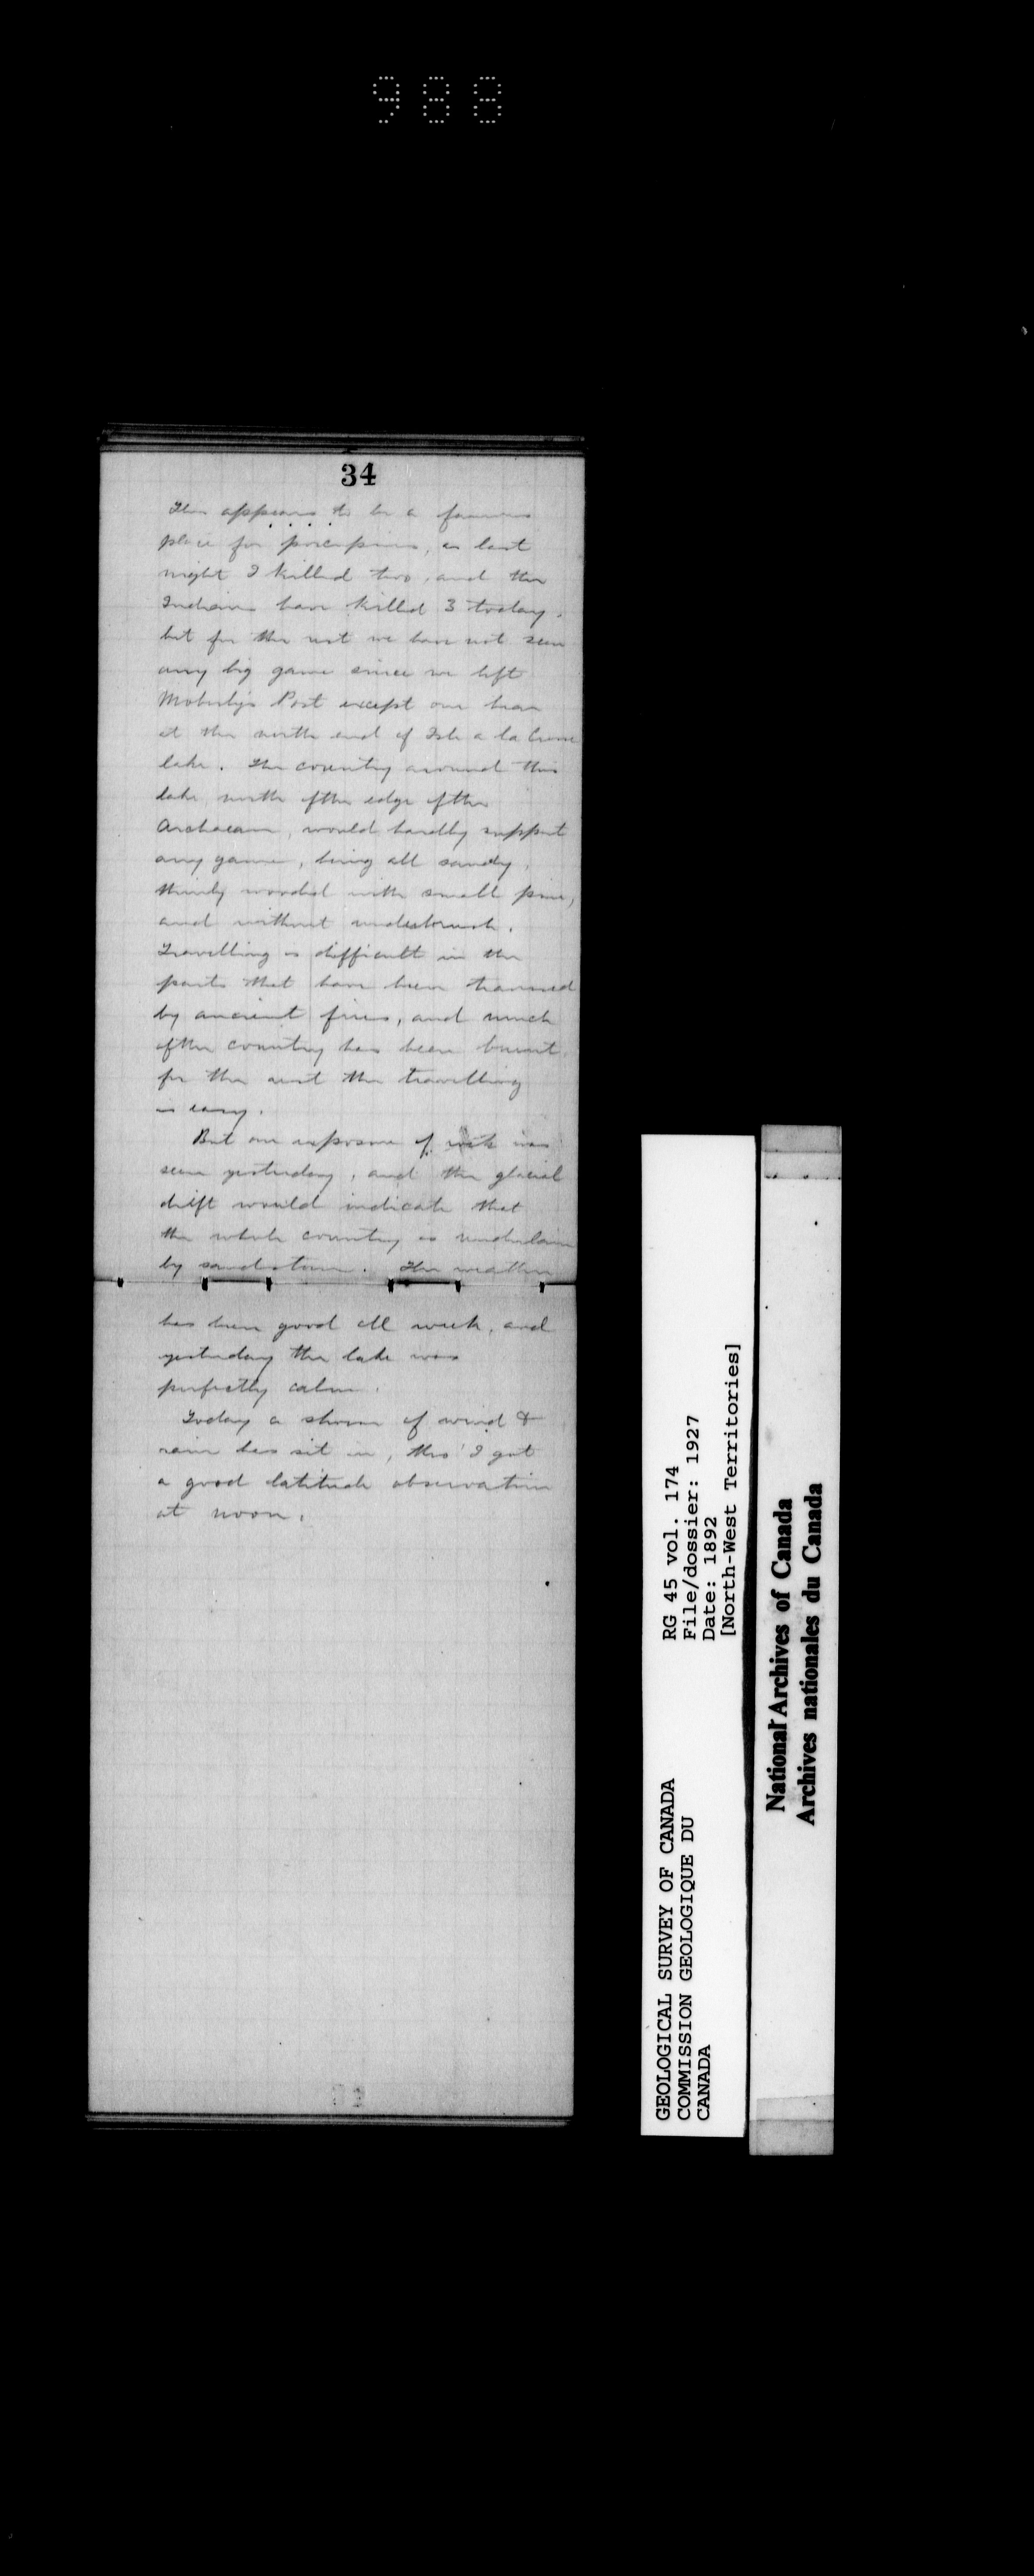 988
34
This appears to be a famous
place for porcupines, as last
night I killed two, and the
Indians have killed 3 today,
but for the rest we have not seen
any big game since we left
Moberly's Post except one bear
at the north end of Isle a la Crosse
lake. The country around this
lake, north of the edge of the
Archaean, would hardly support
any game, being all sandy,
thinly wooded with small pine,
and without underbrush.
Travelling is difficult in the
parts that have been traversed
by ancient fires, and much
of the country has been burnt,
for the rest the travelling
is easy.
But one exposure of rock was
seen yesterday, and the glacial
drift would indicate that
the whole country is underlain
by sandstone. The weather
has been good all week, and
yesterday the lake was
perfectly calm.
Today a storm of wind &
rain has set in, tho' I got
a good latitude observation
at noon.
GEOLOGICAL SURVEY OF CANADA
COMMISSION GEOLOGIQUE DU
CANADA
RG 45 vol. 174
File/dossier: 1927
Date: 1892
[North-West Territories]
National Archives of Canada
Archives nationales du Canada